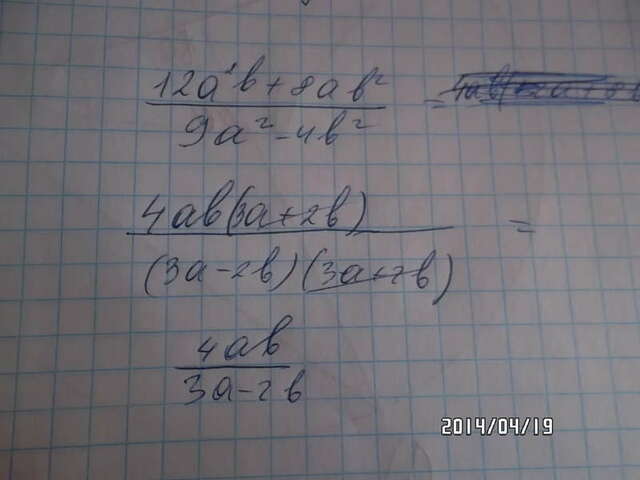 12a²b+8ab²
9a²-4b²
=
4ab(3a+2b)
=
(3a-2b)(3a+2b)
4ab
3a-2b
2014/04/19